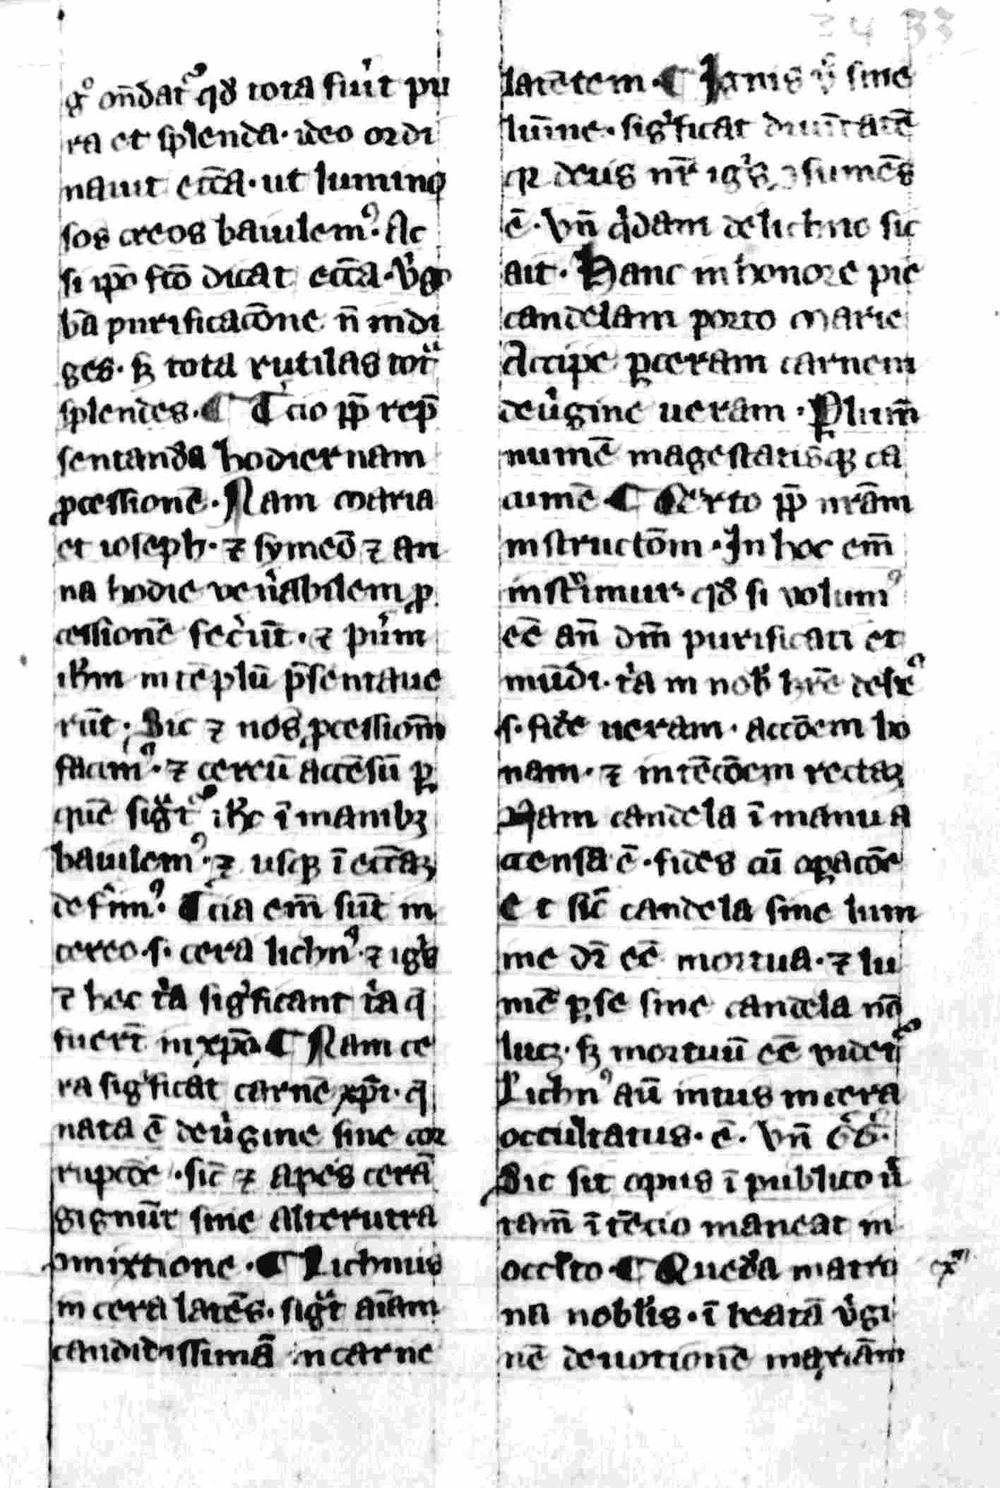 34 33
gͦ on̄datᷣ qď tota fuit pu
ra et splenda · ideo ordi
nauit ecc̄a · ut lumino
sos cereos baiulemꝰ · Ac
si ip̄o fc̄o dicat ecc̄a · v̓go
bā purificac̄one n̄ indi
ges · sꝫ tota rutilas tota
splendes · ¶ Tcio pp̄ rep̄
sentandā hodiernam
ꝓcessionē · Nam maria
et ioseph · ⁊ symeō ⁊ an
na hodie ven̓abilem ꝓ
cessionē fec̓ūt · ⁊ pu̓m
ih̄m in tēplū p̄sentaue
rūt · Sic ⁊ nos ꝓcession̄
facimꝰ · ⁊ cereū accēsū ꝑ
quē sigᷓtᷣ ih̄c ī manibꝫ
baiulemꝰ · ⁊ usqꝫ ī ecc̄aꝫ
defim̓ꝰ · Tcia em̄ sūt in
cereo · s · cera lichnꝰ · ⁊ igͥs
⁊ hec tͥa sigͥficant tͥa q̄
fuer̄t in xp̄o ¶ Nam ce
ra sigͥficat carnē xp̄i · q̄
nata ē de v̓gine sine cor
rupc̄oe · sic̄ ⁊ apes cerā
gignūt sine alterutra
ꝯmixtione · ¶ Lichnus
in cera latēs · sigᷓt aīam
candidissimā in carne
latētem · ¶ Ignis v̓ sine
lum̄ne · sigͥficat diuītatē
qꝛ deus nr̄ igͥs ꝯsumēs
ē · Vn̄ qͥdam de lichno sic
ait · Hanc in honore pie
candelam porto marie
Accipe ꝑ ceram carnem
de v̓gine ueram · Ꝑ lum̄
numē magestatisqꝫ ca
cumē ¶ Qͣrto pp̄ nr̄am
instructōm · In hoc em̄
instͥimur · qď si volumꝰ
eē an̄ dm̄ purificati et
mūdi · tͥa in nob̄ hr̄e debeꝰ
s · fidē ueram · accōem bo
nam · ⁊ intēcōem rectaꝫ
Nam candela ī manu a
ccensa ē · fides cū oꝑacōe
Et sic̄ candela sine lum
ine dr̄ eē mortua · ⁊ lu
mē ꝑ se sine candela nō
lucꝫ · sꝫ mortuū eē videtᷣ
Lichnꝰ aū intus in cera
occultatus · ē · Vn̄ Gͦ Gͦ ·
Sic sit opus ī publico v̓
tam̄ ī tēcio maneat in
occl̄to · ¶ Quedā matro
na nobl̓is · ī beatā v̓gi
nē deuotionē mariām